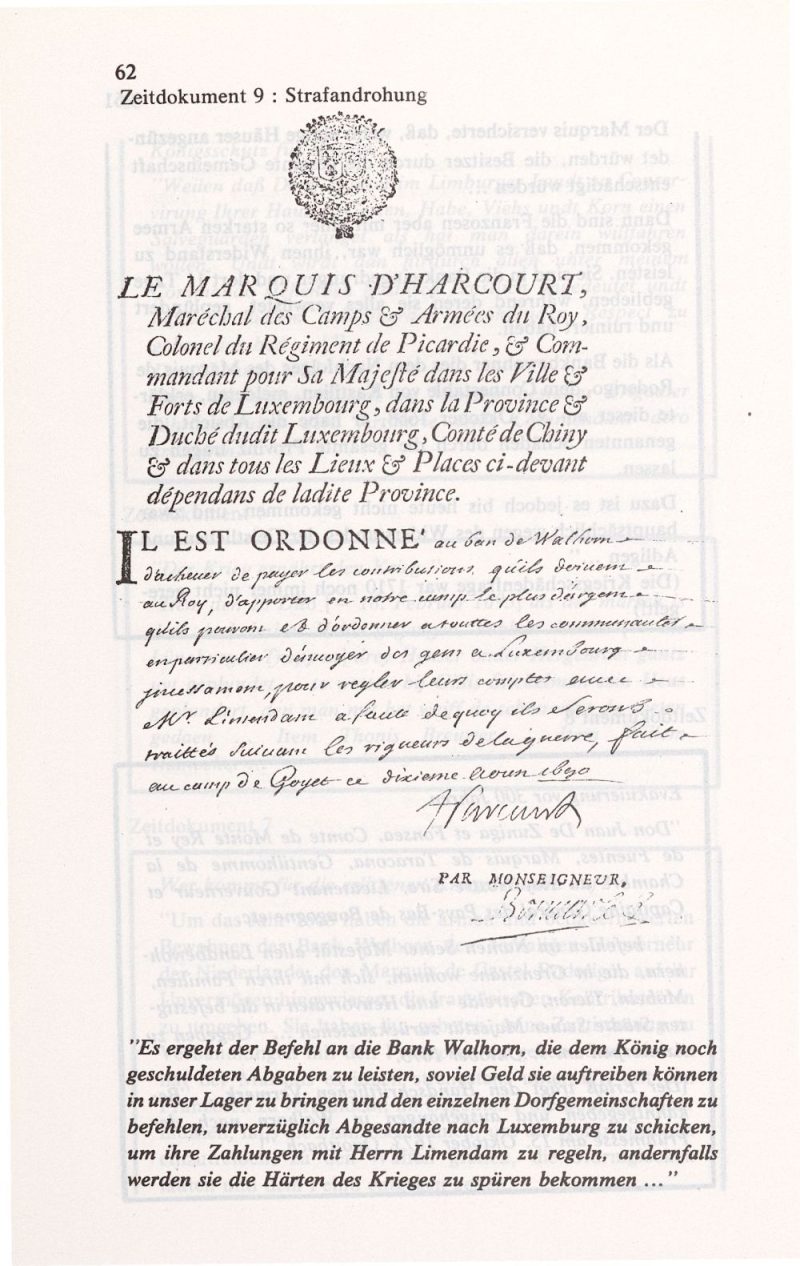 62
Zeitdokument 9 : Strafandrohung
LE MARQUIS D'HARCOURT,
Maréchal des Camps & Armées du Roy,
Colonel du Régiment de Picardie, & Com-
mandant pour Sa Majeſté dans les Ville &
Forts de Luxembourg, dans la Province &
Duché dudit Luxembourg, Comté de Chiny
& dans tous les Lieux & Places ci-devant
dépendans de ladite Province.
IL EST ORDONNE' au ban de Walhorn
d'acheuer de payer les contributions qu'ils doiuent
au Roy, d'apporter en notre camp le plus d'argent
qu'ils pouront et d'ordonner a touttes les communautés
en particulier d'enuoyer des gens a Luxembourg
incessament, pour regler leurs comptes auec
Mr. Limendam a faute dequoy ils Seront
traittés Suiuant les rigueurs de la guerre, fait
au camp de Goyet ce dixieme Aoust 1690
Harcourt
PAR MONSEIGNEUR,
"Es ergeht der Befehl an die Bank Walhorn, die dem König noch
geschuldeten Abgaben zu leisten, soviel Geld sie auftreiben können
in unser Lager zu bringen und den einzelnen Dorfgemeinschaften zu
befehlen, unverzüglich Abgesandte nach Luxemburg zu schicken,
um ihre Zahlungen mit Herrn Limendam zu regeln, andernfalls
werden sie die Härten des Krieges zu spüren bekommen ..."